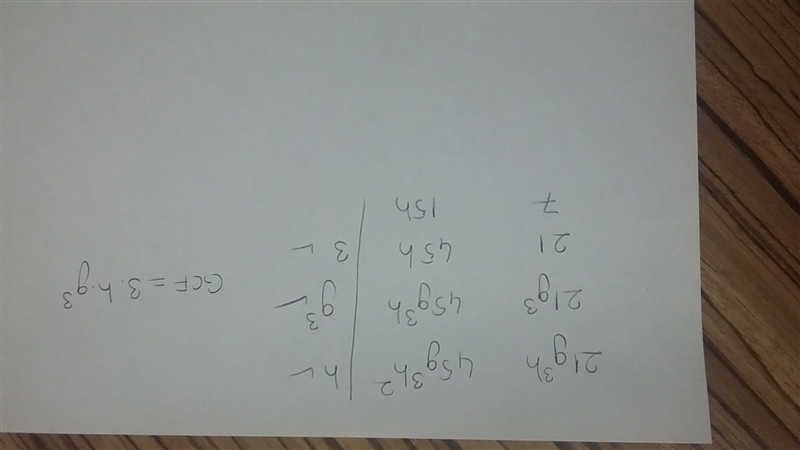 21g³h 45g³h² | h ✓
21g³ 45g³h | g³ ✓
21 45h | 3 ✓
7 15h |
GCF = 3·h·g³